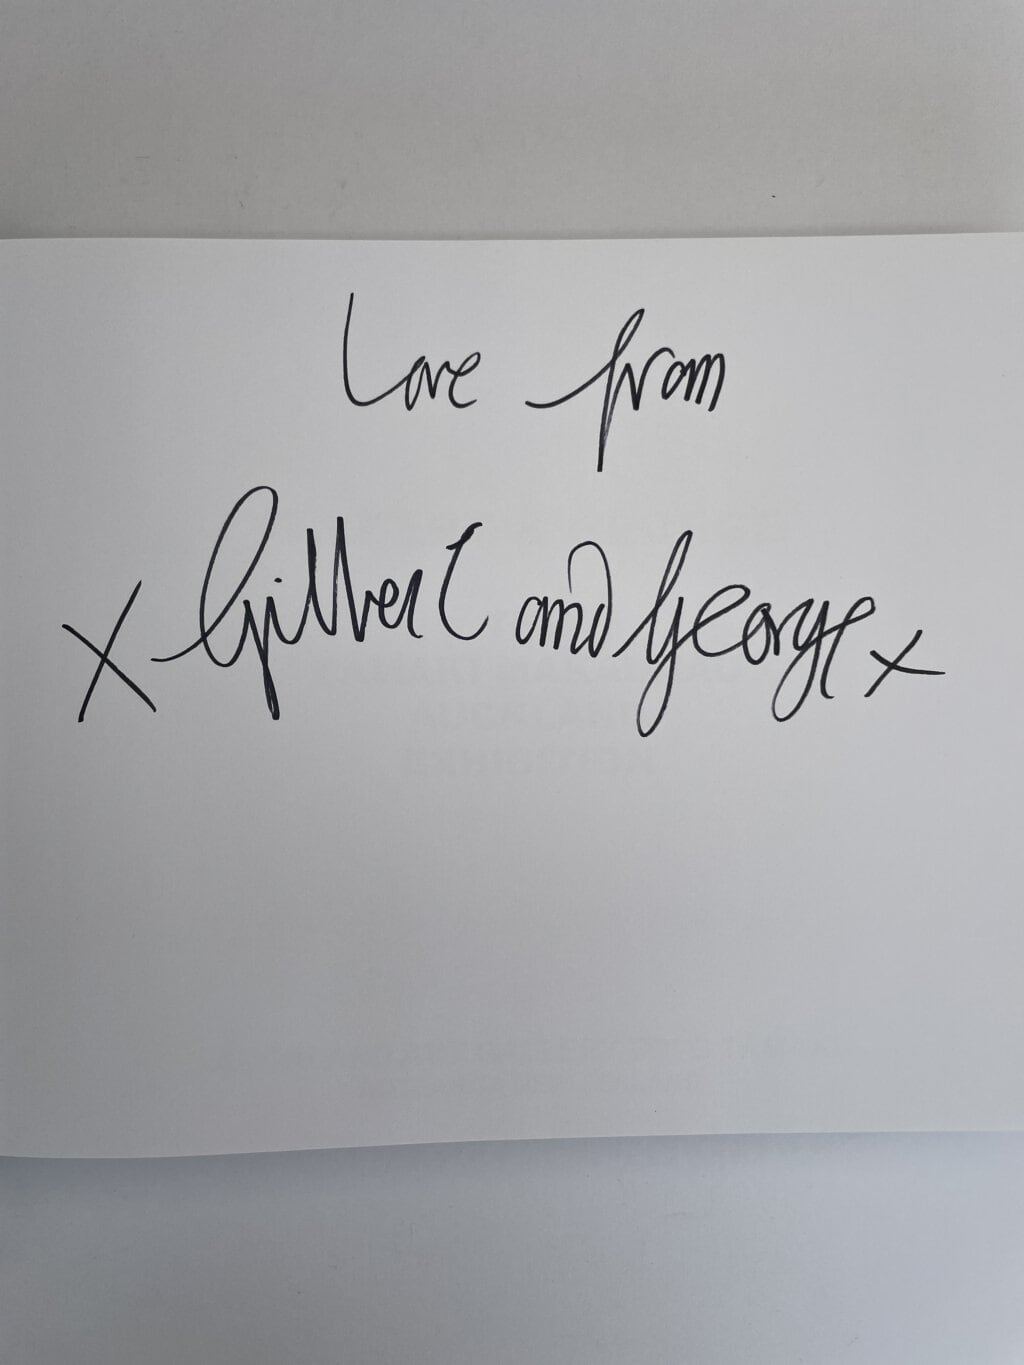 Love from
x Gilbert and George x